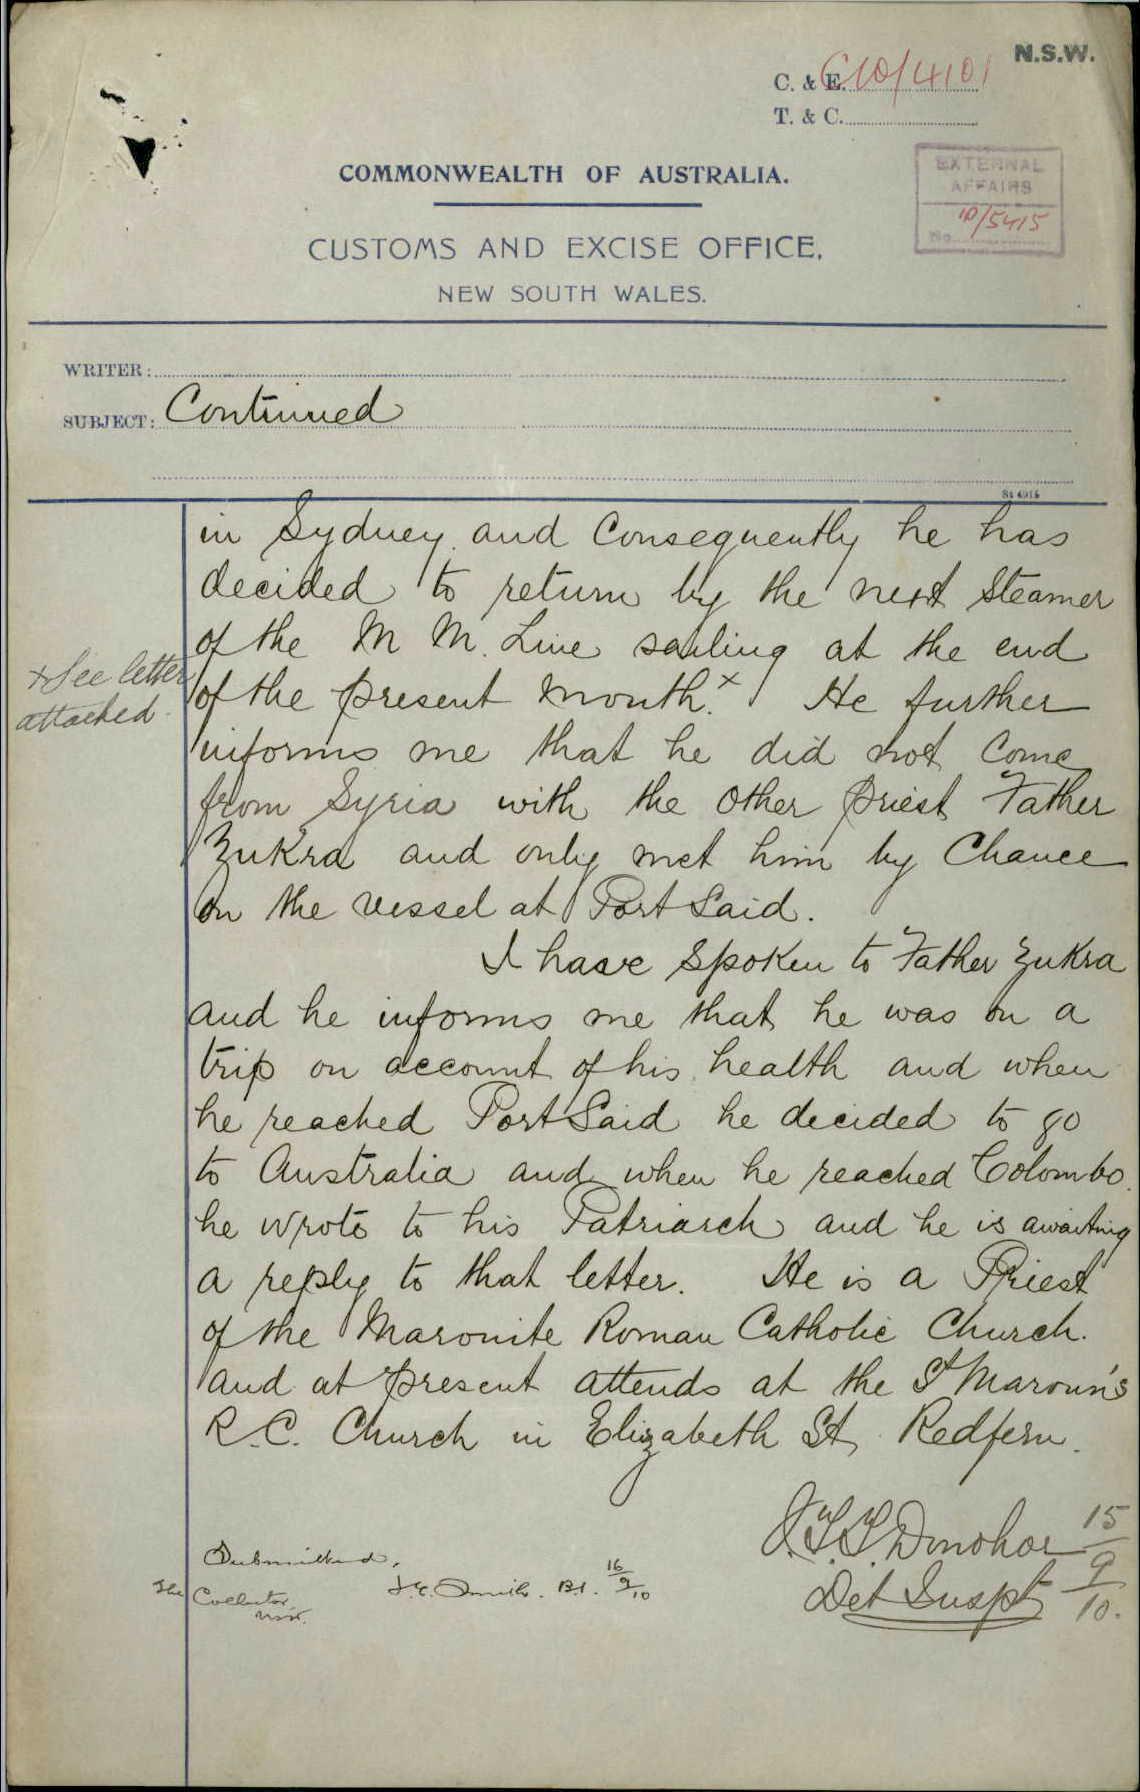 N.S.W.
C. & E. C10/4101
T. & C.
COMMONWEALTH OF AUSTRALIA.
EXTERNAL
AFFAIRS
No. 10/5415
CUSTOMS AND EXCISE OFFICE,
NEW SOUTH WALES.
WRITER:
SUBJECT: Continued
in Sydney and Consequently he has
decided to return by the next Steamer
of the M M. Line sailing at the end
x See letter
attached.
of the present month.x He further
informs me that he did not Come
from Syria with the other priest Father
ZuKra and only met him by Chance
on the vessel at Port Said.
I have Spoken to Father ZuKra
and he informs me that he was on a
trip on account of his health and when
he reached Port Said he decided to go
to Australia and when he reached Colombo
he wrote to his Patriarch and he is awaiting
a reply to that letter. He is a Priest
of the Maronite Roman Catholic Church.
and at present attends at the St Maroun's
R.C. Church in Elizabeth St Redfern.
Donohoe 15/9/10.
Det Inspr
Submitted.
The Collector
NSW.
16/9/10